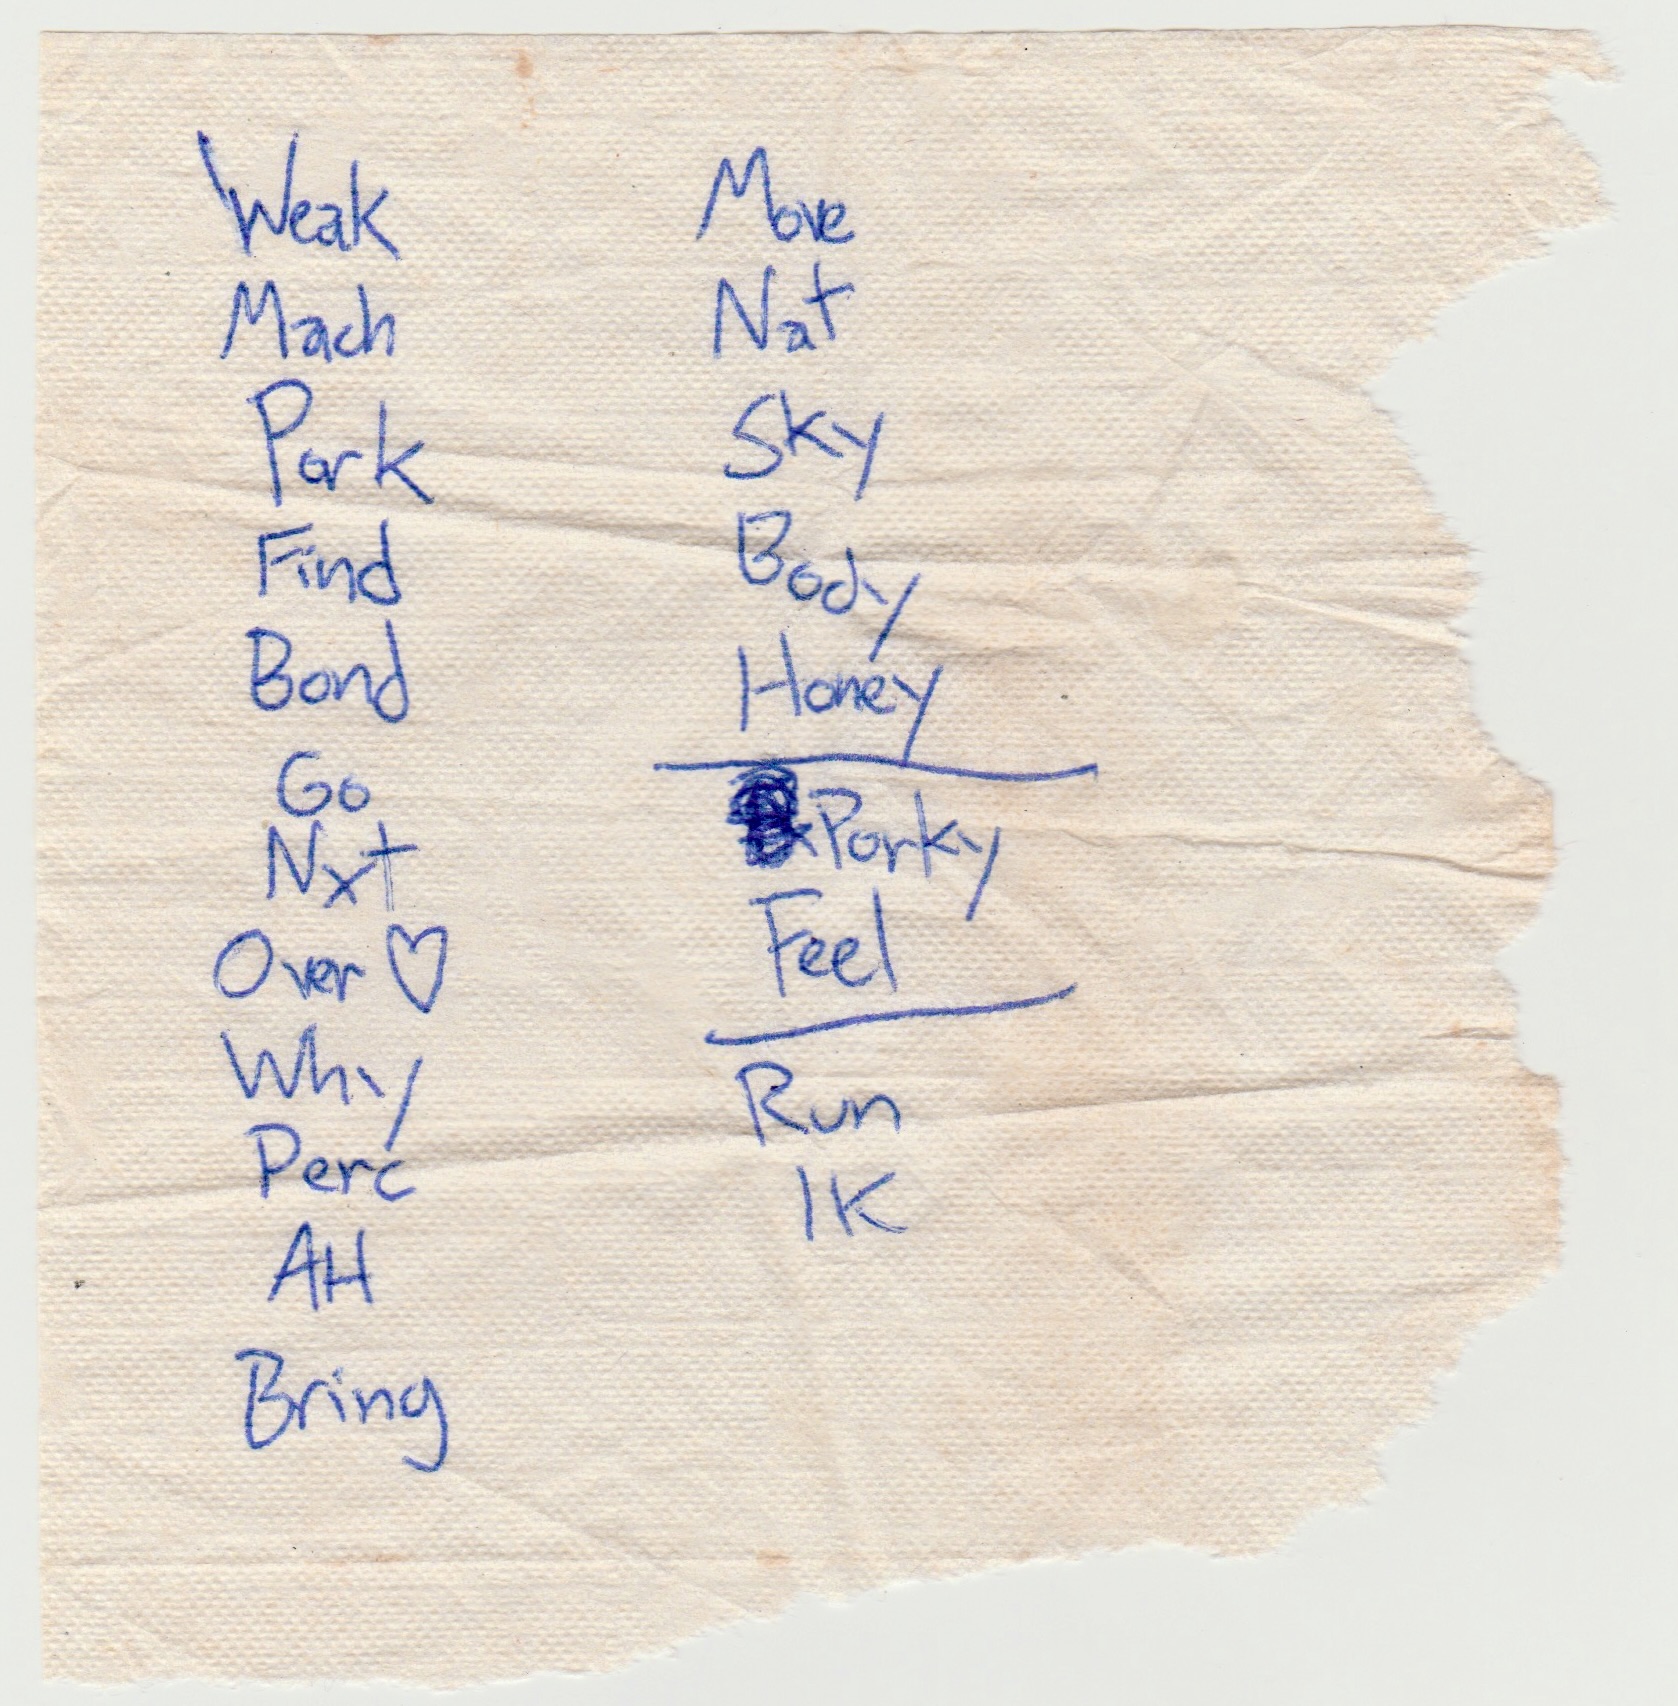 Weak
Mach
Pork
Find
Bond
Go
Nxt
Over ♡
Why
Perc
AH
Bring
Move
Nat
Sky
Body
Honey
Porky
Feel
Run
IK